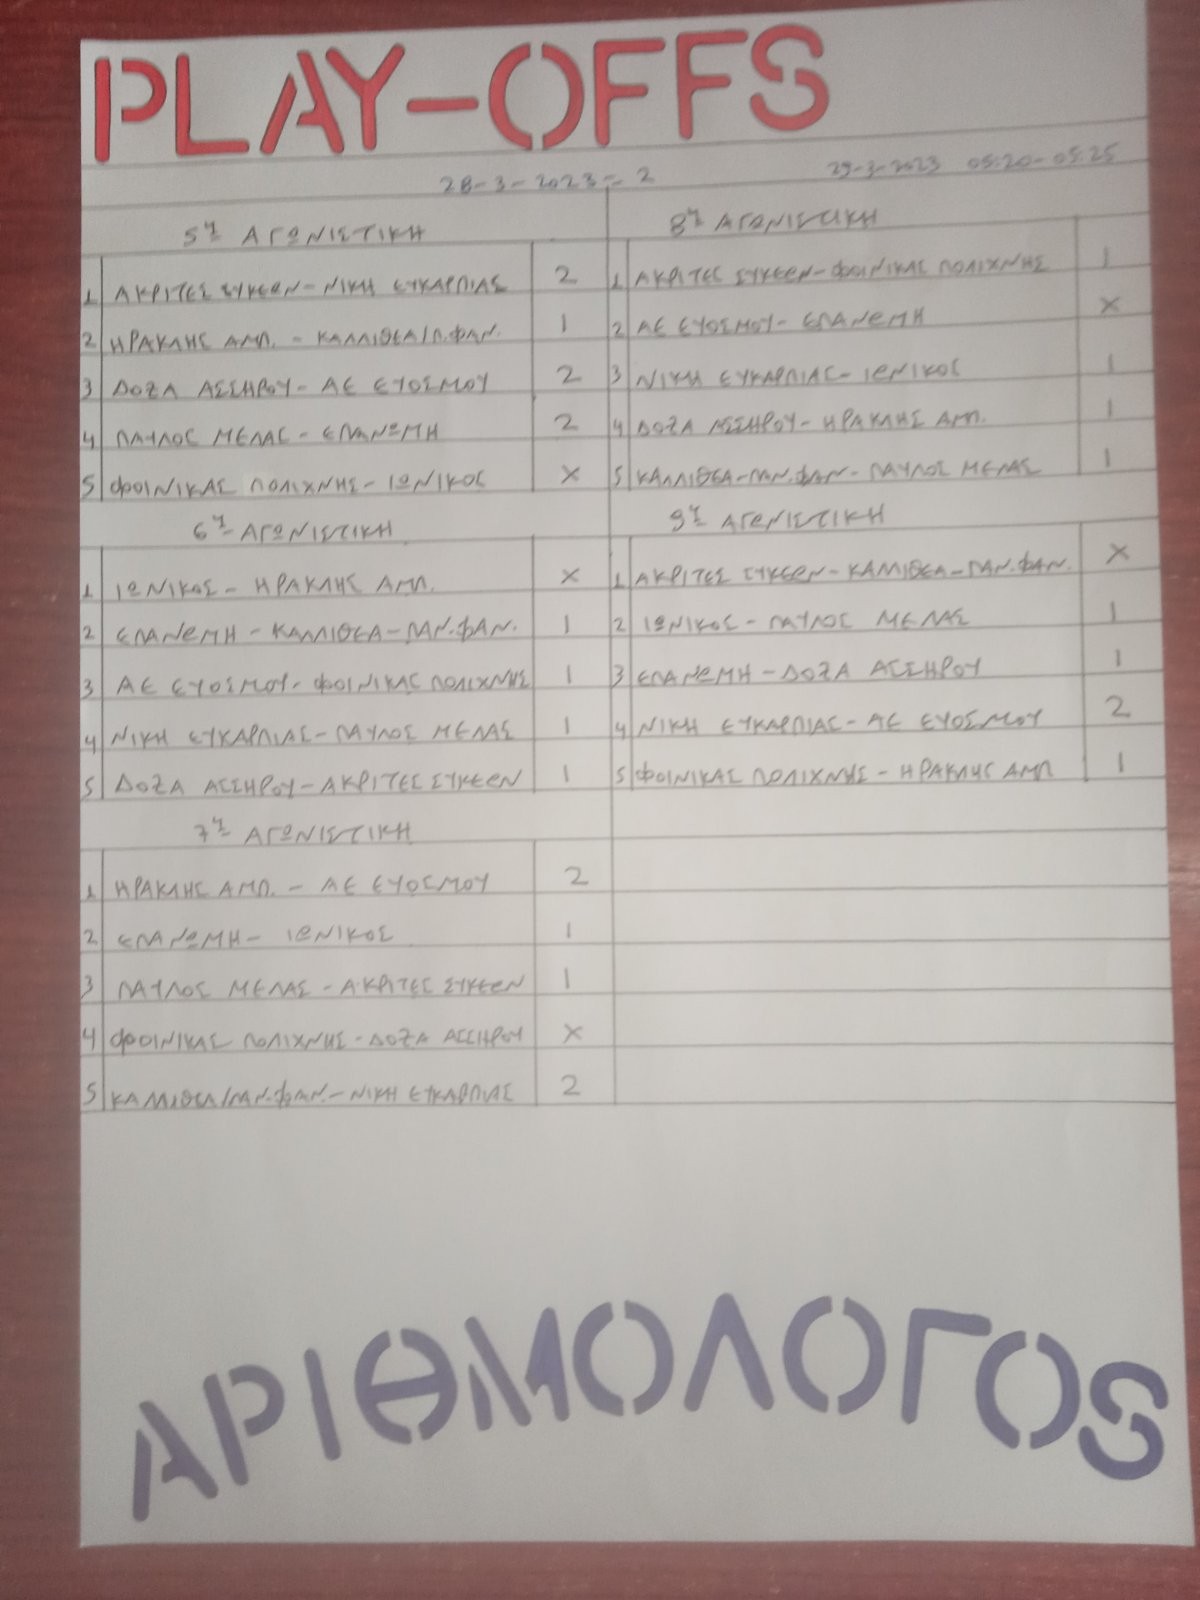 PLAY-OFFS
28-3-2023 - 2
29-3-2023 05:20-05:25
5η ΑΓΩΝΙΣΤΙΚΗ
1 ΑΚΡΙΤΕΣ ΣΥΚΕΩΝ - ΝΙΚΗ ΕΥΚΑΡΠΙΑΣ 2
2 ΗΡΑΚΛΗΣ ΑΜΠ. - ΚΑΛΛΙΘΕΑ/Π.ΦΑΝ. 1
3 ΔΟΞΑ ΑΣΣΗΡΟΥ - ΑΕ ΕΥΟΣΜΟΥ 2
4 ΠΑΥΛΟΣ ΜΕΛΑΣ - ΕΠΑΝΩΜΗ 2
5 ΦΟΙΝΙΚΑΣ ΠΟΛΙΧΝΗΣ - ΙΩΝΙΚΟΣ Χ
6η ΑΓΩΝΙΣΤΙΚΗ
1 ΙΩΝΙΚΟΣ - ΗΡΑΚΛΗΣ ΑΜΠ. Χ
2 ΕΠΑΝΩΜΗ - ΚΑΛΛΙΘΕΑ-ΠΑΝ.ΦΑΝ. 1
3 ΑΕ ΕΥΟΣΜΟΥ - ΦΟΙΝΙΚΑΣ ΠΟΛΙΧΝΗΣ 1
4 ΝΙΚΗ ΕΥΚΑΡΠΙΑΣ - ΠΑΥΛΟΣ ΜΕΛΑΣ 1
5 ΔΟΞΑ ΑΣΣΗΡΟΥ - ΑΚΡΙΤΕΣ ΣΥΚΕΩΝ 1
7η ΑΓΩΝΙΣΤΙΚΗ
1 ΗΡΑΚΛΗΣ ΑΜΠ. - ΑΕ ΕΥΟΣΜΟΥ 2
2 ΕΠΑΝΩΜΗ - ΙΩΝΙΚΟΣ 1
3 ΠΑΥΛΟΣ ΜΕΛΑΣ - ΑΚΡΙΤΕΣ ΣΥΚΕΩΝ 1
4 ΦΟΙΝΙΚΑΣ ΠΟΛΙΧΝΗΣ - ΔΟΞΑ ΑΣΣΗΡΟΥ Χ
5 ΚΑΛΛΙΘΕΑ/ΠΑΝ.ΦΑΝ. - ΝΙΚΗ ΕΥΚΑΡΠΙΑΣ 2
8η ΑΓΩΝΙΣΤΙΚΗ
1 ΑΚΡΙΤΕΣ ΣΥΚΕΩΝ - ΦΟΙΝΙΚΑΣ ΠΟΛΙΧΝΗΣ 1
2 ΑΕ ΕΥΟΣΜΟΥ - ΕΠΑΝΩΜΗ Χ
3 ΝΙΚΗ ΕΥΚΑΡΠΙΑΣ - ΙΩΝΙΚΟΣ 1
4 ΔΟΞΑ ΑΣΣΗΡΟΥ - ΗΡΑΚΛΗΣ ΑΜΠ. 1
5 ΚΑΛΛΙΘΕΑ-ΠΑΝ.ΦΑΝ - ΠΑΥΛΟΣ ΜΕΛΑΣ 1
9η ΑΓΩΝΙΣΤΙΚΗ
1 ΑΚΡΙΤΕΣ ΣΥΚΕΩΝ - ΚΑΛΛΙΘΕΑ-ΠΑΝ.ΦΑΝ. Χ
2 ΙΩΝΙΚΟΣ - ΠΑΥΛΟΣ ΜΕΛΑΣ 1
3 ΕΠΑΝΩΜΗ - ΔΟΞΑ ΑΣΣΗΡΟΥ 1
4 ΝΙΚΗ ΕΥΚΑΡΠΙΑΣ - ΑΕ ΕΥΟΣΜΟΥ 2
5 ΦΟΙΝΙΚΑΣ ΠΟΛΙΧΝΗΣ - ΗΡΑΚΛΗΣ ΑΜΠ 1
ΑΡΙΘΜΟΛΟΓΟS